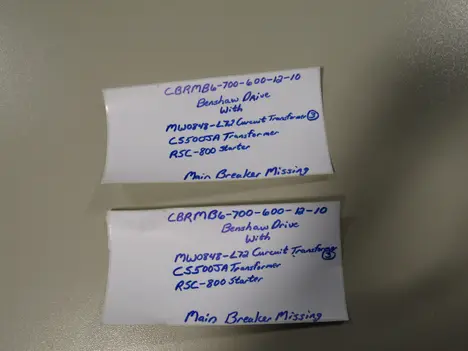 CBRMB6-700-600-12-10
Benshaw Drive
With
MW0848-L72 Curcuit Transformer ③
CS500JA Transformer
RSC-800 Starter
Main Breaker Missing
CBRMB6-700-600-12-10
Benshaw Drive
With
MW0848-L72 Curcuit Transformer ③
CS500JA Transformer
RSC-800 Starter
Main Breaker Missing